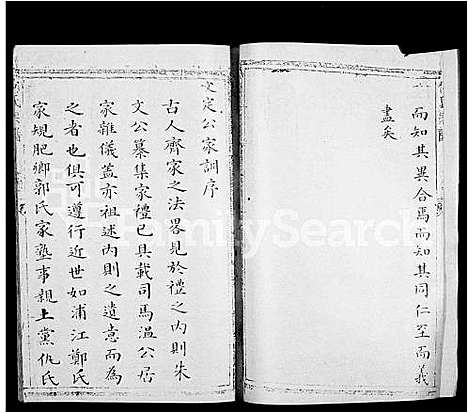 而知其異合焉而知其同仁至而義
盡矣
文定公家訓序
古人齊家之法畧見於禮之內則朱
文公纂集家禮已具載司馬溫公居
家雜儀蓋亦祖述內則之遺意而為
之者也俱可遵行近世如浦江鄭氏
家規肥鄉郭氏家塾事親上黨仇氏
FamilySearch